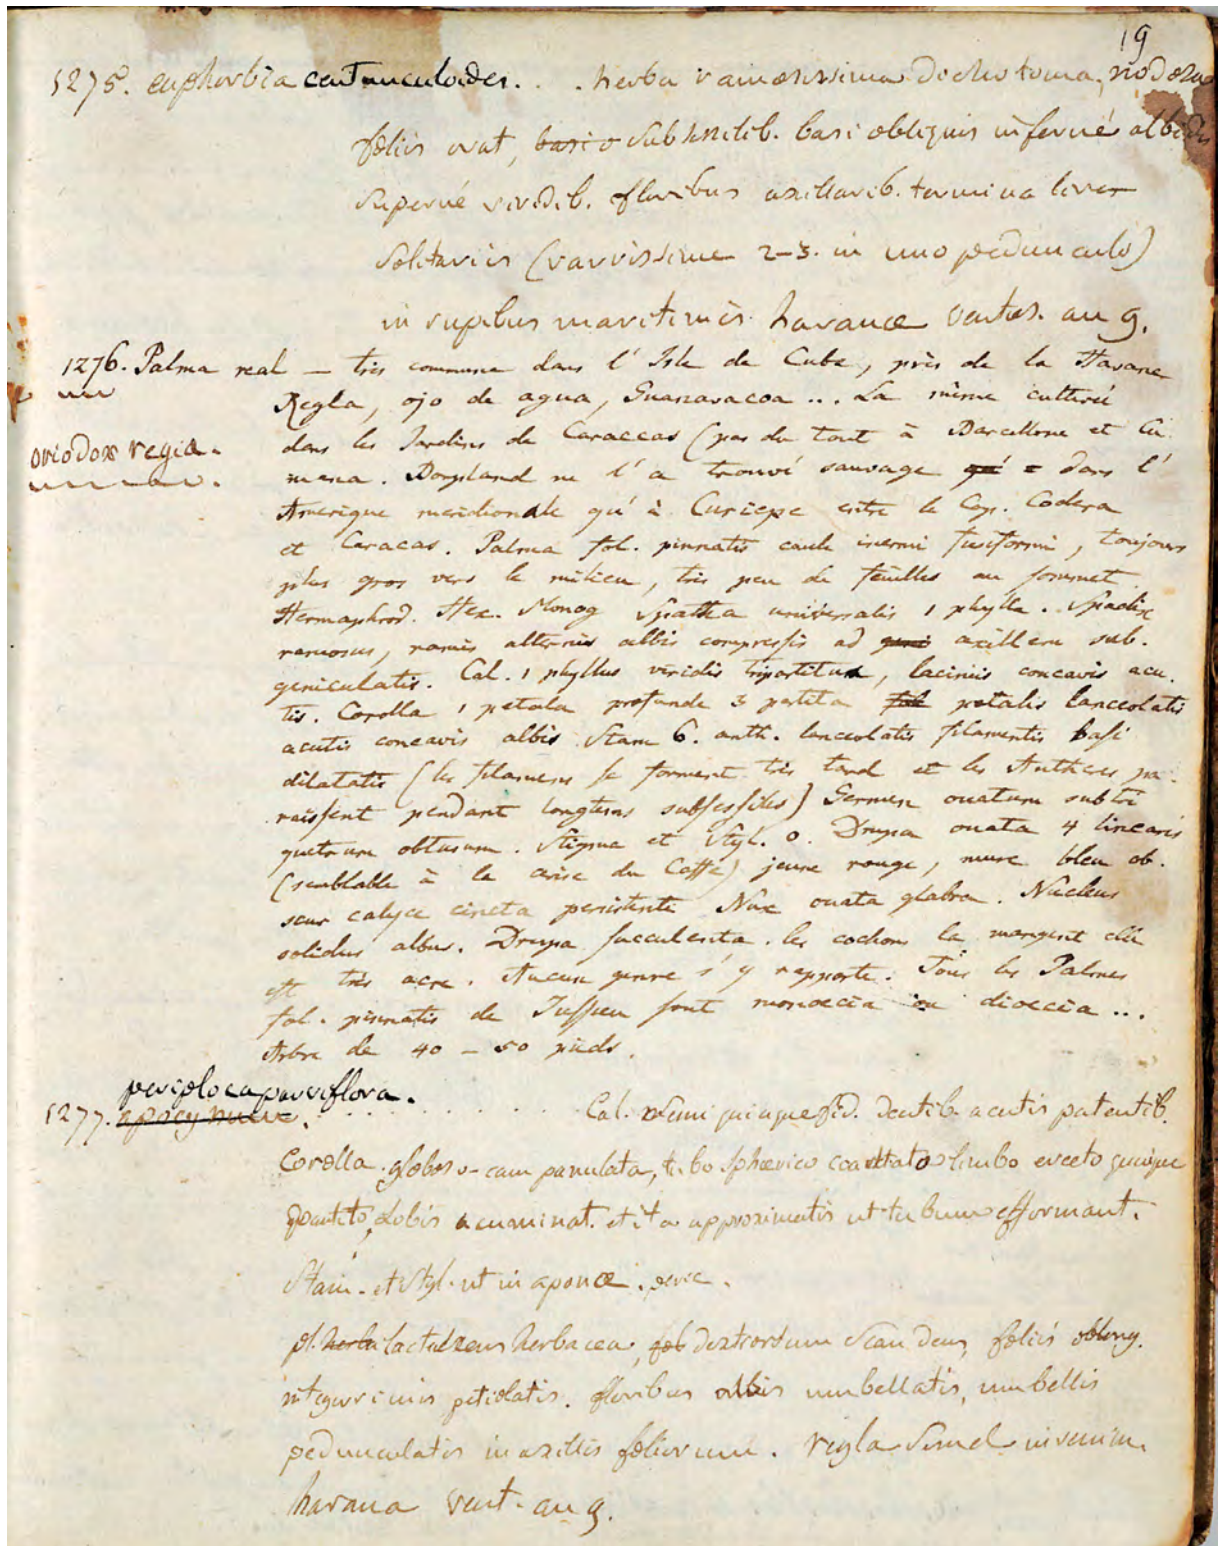 19
1275. euphorbia centunculoides. . . herba ramosissima dochotoma, nodosa
foliis ovat, basi subsessilib. basi obliquis inferné albidis
superné viridib. floribus axillarib. terminalever
Solitariis (rarissime 2-3. in uno pedunculo)
in rupibus maritimis havanae ventos. aug.
1276. Palma real — très commune dans l' Isle de Cuba, près de la Havane
Regla, ojo de agua, Guanavacoa ... La même cultivé
oriodox regia.
dans les Jardins de Caraccas (pas du tout à Barcellone et Cu
mana. Bonpland ne l' a trouvé sauvage dans l'
Amerique meridionale qu' à Curiepe entre le Cap. Codera
et Caracas. Palma fol. pinnatis caule inermi fusiformi, toujours
plus gros vers le milieu, très peu de feuilles au sommet
Hermaphrod. Hex. Monog Spatha universalis 1 phylla. Spadix
ramosus, ramis alternis albis compressis ad axillem sub.
geniculatis. Cal. 1 phyllus viridis tripartitus, laciniis concavis acu.
tis. Corolla 1 petala profunde 3 partita petalis lanceolatis
acutis concavis albis Stam 6. anth. lanceolatis filamentis basi
dilatatis (les filamens se forment très tard et les Antheres pa.
raissent pendant longtems subsessiles) Germen ovatum subtri
quetrum obtusum. Stigma et Styl. 0. Drupa ovata 4 linearis
(semblable à la cerise du Caffé) jeune rouge, mure bleu ob.
scur calyce cincta persistente Nux ovata glabra. Nucleus
solidus albus. Drupa succulenta. les cochons la mangent elle
est très acre. Aucun genre s' y rapporte. Tous les Palmes
fol. pinnatis de Jussieu sont monoecia ou dioecia ...
Arbre de 40 — 50 pieds.
periploca parviflora.
1277. apocynum. . . . . . . . Cal. semi quinquefid. dentib. acutis patentib.
Corolla globoso-campanulata, tubo sphaerico coarctato limbo erecto quinque
partito, Lobis acuminat. et ita approximatis ut tubum efformant.
Stam. et Styl. ut in apocæ.
pl. herba lactescens herbacea, fol dextrorsum scandens, foliis oblong.
integerrimis petiolatis. floribus albis umbellatis, umbellis
pedunculatis in axillis foliorum. regla Semel inveni in
havana vent. aug.